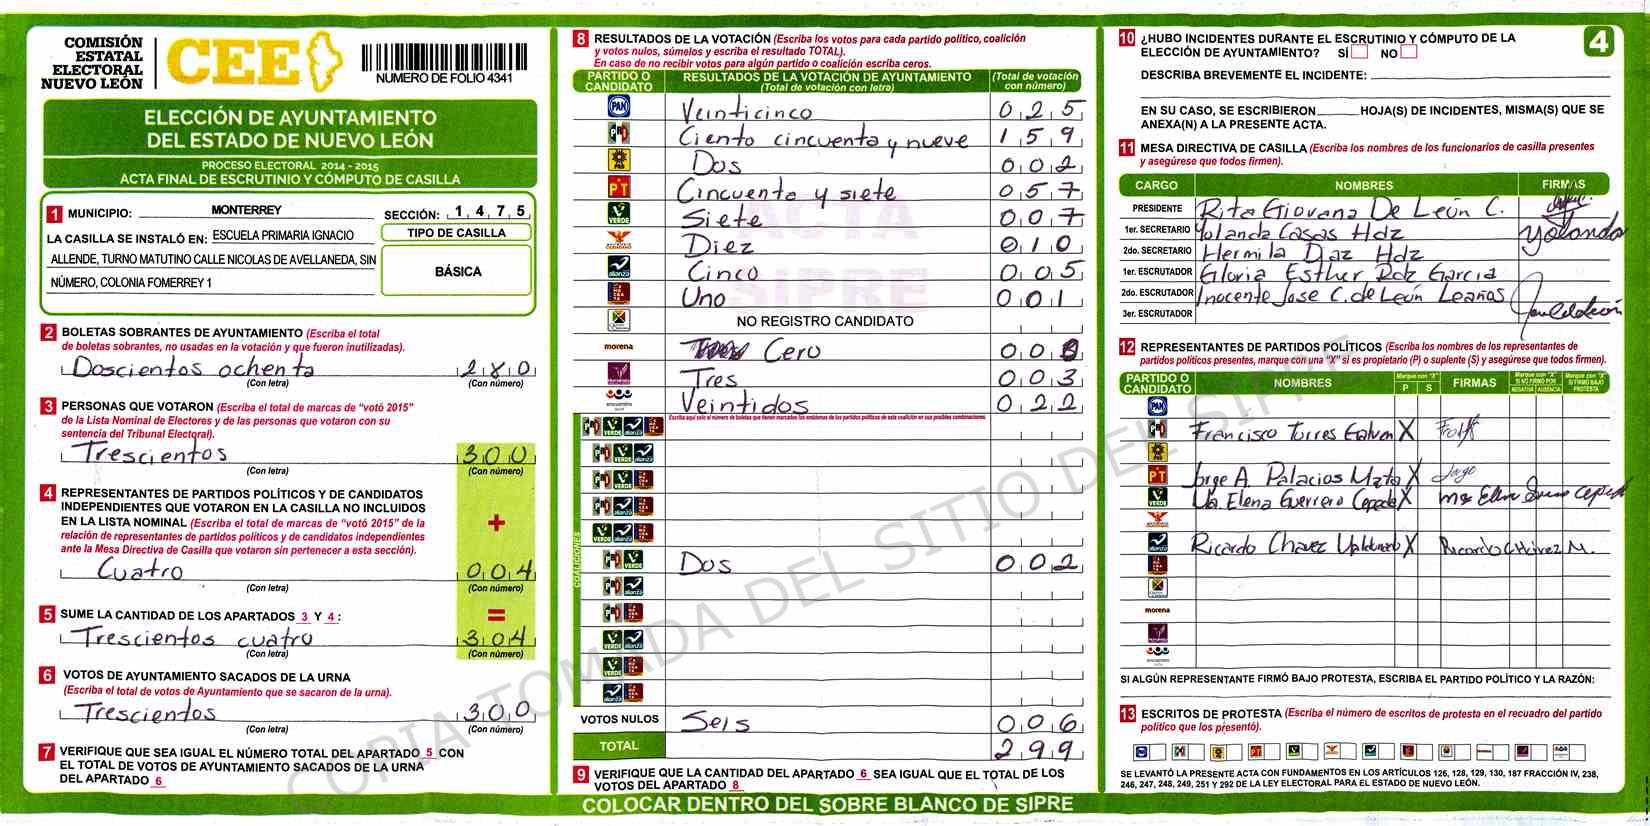 COMISIÓN
ESTATAL
ELECTORAL
NUEVO LEÓN
CEE
NUMERO DE FOLIO 4341
ELECCIÓN DE AYUNTAMIENTO
DEL ESTADO DE NUEVO LEÓN
PROCESO ELECTORAL 2014 - 2015
ACTA FINAL DE ESCRUTINIO Y CÓMPUTO DE CASILLA
1 MUNICIPIO: MONTERREY SECCIÓN: 1 4 7 5
LA CASILLA SE INSTALÓ EN: ESCUELA PRIMARIA IGNACIO
ALLENDE, TURNO MATUTINO CALLE NICOLAS DE AVELLANEDA, SIN
NÚMERO, COLONIA FOMERREY 1
TIPO DE CASILLA
BÁSICA
2 BOLETAS SOBRANTES DE AYUNTAMIENTO (Escriba el total
de boletas sobrantes, no usadas en la votación y que fueron inutilizadas).
Doscientos ochenta 280
(Con letra) (Con número)
3 PERSONAS QUE VOTARON (Escriba el total de marcas de "votó 2015"
de la Lista Nominal de Electores y de las personas que votaron con su
sentencia del Tribunal Electoral).
Trescientos 300
(Con letra) (Con número)
4 REPRESENTANTES DE PARTIDOS POLÍTICOS Y DE CANDIDATOS
INDEPENDIENTES QUE VOTARON EN LA CASILLA NO INCLUIDOS
EN LA LISTA NOMINAL (Escriba el total de marcas de "votó 2015" de la
relación de representantes de partidos políticos y de candidatos independientes
ante la Mesa Directiva de Casilla que votaron sin pertenecer a esta sección).
+
Cuatro 004
(Con letra) (Con número)
5 SUME LA CANTIDAD DE LOS APARTADOS 3 Y 4 : =
Trescientos cuatro 304
(Con letra) (Con número)
6 VOTOS DE AYUNTAMIENTO SACADOS DE LA URNA
(Escriba el total de votos de Ayuntamiento que se sacaron de la urna).
Trescientos 300
(Con letra) (Con número)
7 VERIFIQUE QUE SEA IGUAL EL NÚMERO TOTAL DEL APARTADO 5 CON
EL TOTAL DE VOTOS DE AYUNTAMIENTO SACADOS DE LA URNA
DEL APARTADO 6
8 RESULTADOS DE LA VOTACIÓN (Escriba los votos para cada partido político, coalición
y votos nulos, súmelos y escriba el resultado TOTAL).
En caso de no recibir votos para algún partido o coalición escriba ceros.
PARTIDO O CANDIDATO RESULTADOS DE LA VOTACIÓN DE AYUNTAMIENTO (Total de votación con letra) (Total de votación con número)
PAN Veinticinco 025
PRI Ciento cincuenta y nueve 159
PRD Dos 002
PT Cincuenta y siete 057
VERDE Siete 007
Diez 010
alianza Cinco 005
Uno 001
NO REGISTRO CANDIDATO
morena Cero 000
Tres 003
encuentro Veintidos 022
Escriba aquí solo el número de boletas que tienen marcados los emblemas de los partidos políticos de esta coalición en sus posibles combinaciones.
COALICIONES
PRI VERDE alianza
PRI VERDE alianza
PRI VERDE
PRI alianza
VERDE alianza
PRI VERDE Dos 002
PRI alianza
PRI
VERDE alianza
VERDE
alianza
VOTOS NULOS Seis 006
TOTAL 299
9 VERIFIQUE QUE LA CANTIDAD DEL APARTADO 6 SEA IGUAL QUE EL TOTAL DE LOS
VOTOS DEL APARTADO 8
COLOCAR DENTRO DEL SOBRE BLANCO DE SIPRE
ACTA
SIPRE
COPIA TOMADA DEL SITIO DEL SIPRE
4
10 ¿HUBO INCIDENTES DURANTE EL ESCRUTINIO Y CÓMPUTO DE LA
ELECCIÓN DE AYUNTAMIENTO? SÍ NO
DESCRIBA BREVEMENTE EL INCIDENTE:
EN SU CASO, SE ESCRIBIERON HOJA(S) DE INCIDENTES, MISMA(S) QUE SE
ANEXA(N) A LA PRESENTE ACTA.
11 MESA DIRECTIVA DE CASILLA (Escriba los nombres de los funcionarios de casilla presentes
y asegúrese que todos firmen).
CARGO NOMBRES FIRMAS
PRESIDENTE Rita Giovana De León C.
1er. SECRETARIO Yolanda Casas Hdz Yolanda
2do. SECRETARIO Hermila Diaz Hdz
1er. ESCRUTADOR Gloria Esther Rdz Garcia
2do. ESCRUTADOR Inocente Jose C. de León Leaños
3er. ESCRUTADOR
12 REPRESENTANTES DE PARTIDOS POLÍTICOS (Escriba los nombres de los representantes de
partidos políticos presentes, marque con una "X" si es propietario (P) o suplente (S) y asegúrese que todos firmen).
PARTIDO O CANDIDATO NOMBRES Marque con "X" P S FIRMAS Marque con "X" SI NO FIRMÓ POR NEGATIVA AUSENCIA Marque con "X" SI FIRMÓ BAJO PROTESTA
PAN
PRI Francisco Torres Galvan X
PRD
PT Jorge A. Palacios Mata X Jorge
VERDE Ma. Elena Guerrero Cepeda X
alianza Ricardo Chavez Maldonado X Ricardo Chávez M.
morena
SI ALGÚN REPRESENTANTE FIRMÓ BAJO PROTESTA, ESCRIBA EL PARTIDO POLÍTICO Y LA RAZÓN:
13 ESCRITOS DE PROTESTA (Escriba el número de escritos de protesta en el recuadro del partido
político que los presentó).
SE LEVANTÓ LA PRESENTE ACTA CON FUNDAMENTOS EN LOS ARTÍCULOS 126, 128, 129, 130, 187 FRACCIÓN IV, 238,
246, 247, 248, 249, 251 Y 292 DE LA LEY ELECTORAL PARA EL ESTADO DE NUEVO LEÓN.